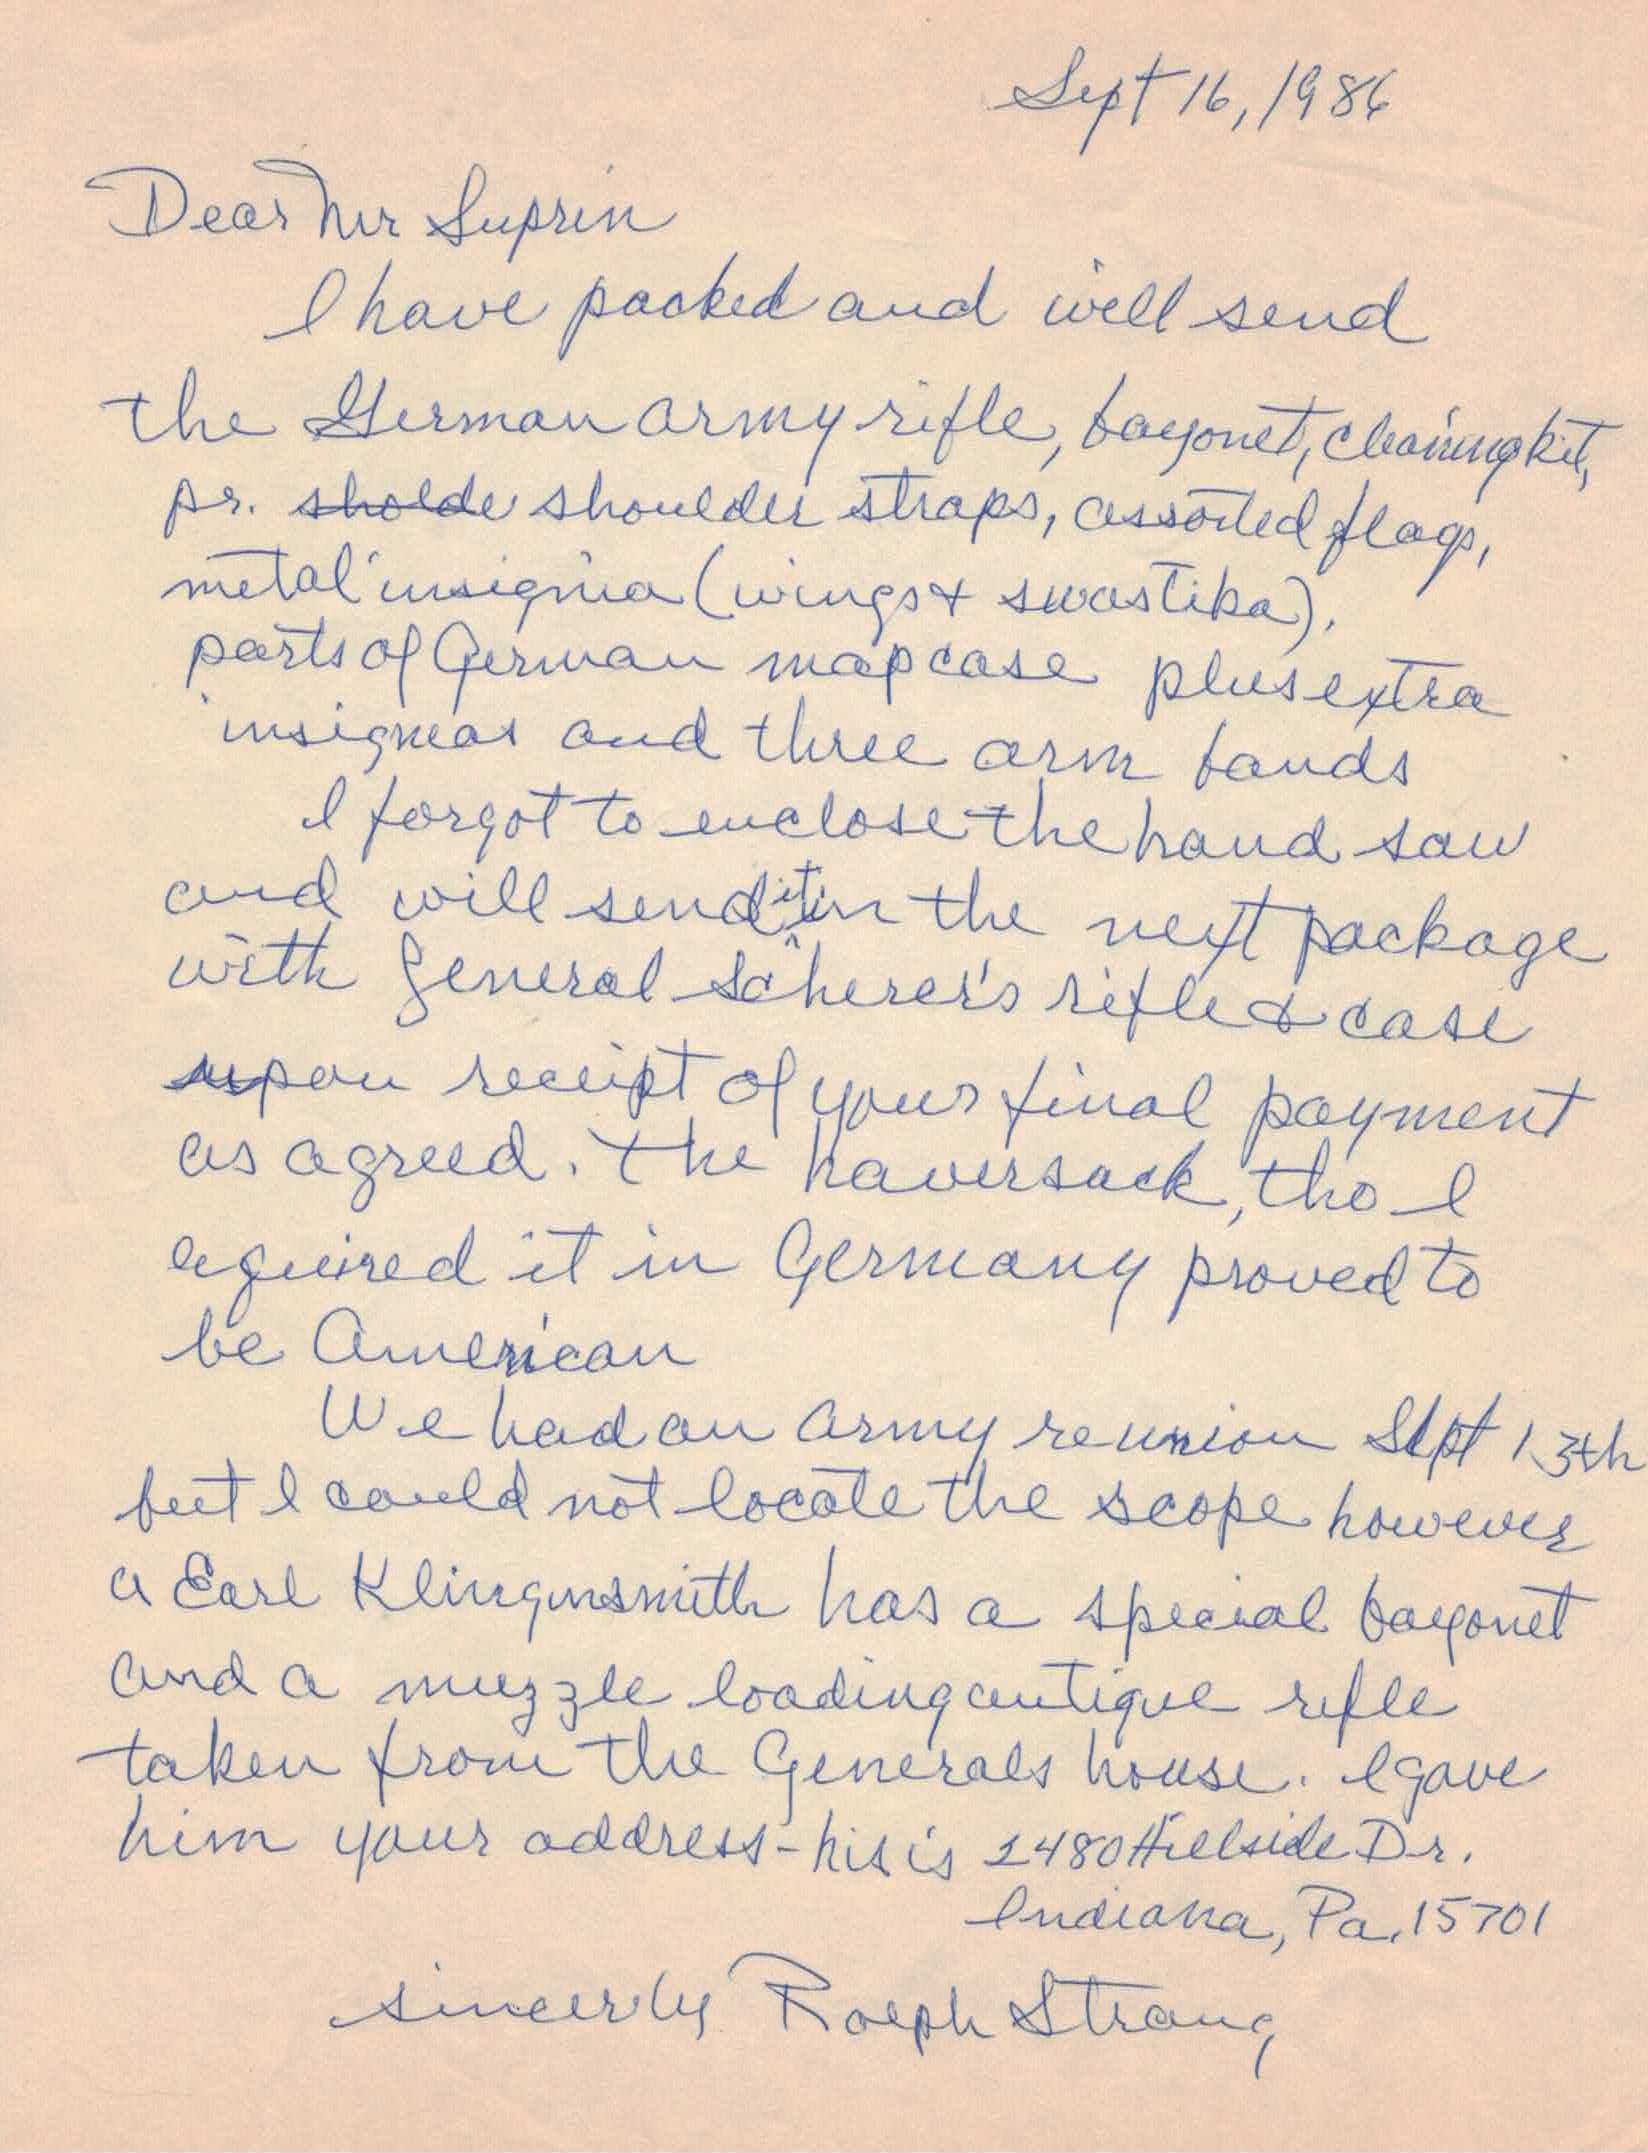 Sept 16, 1986
Dear Mr Suprin
I have packed and will send
the German army rifle, bayonet, cleaning kit,
pr. sholde shoulder straps, assorted flags,
metal insignia (wings & swastika),
parts of German map case plus extra
insignias and three arm bands
I forgot to enclose the hand saw
and will send it in the next package
with General Scherer's rifle & case
upon receipt of your final payment
as agreed. The haversack, tho I
aquired it in Germany proved to
be American
We had an army reunion Sept 13th
but I could not locate the scope however
a Earl Klingensmith has a special bayonet
and a muzzle loading antique rifle
taken from the Generals house. I gave
him your address - his is 2480 Hillside Dr.
Indiana, Pa. 15701
sincerly Ralph Strang